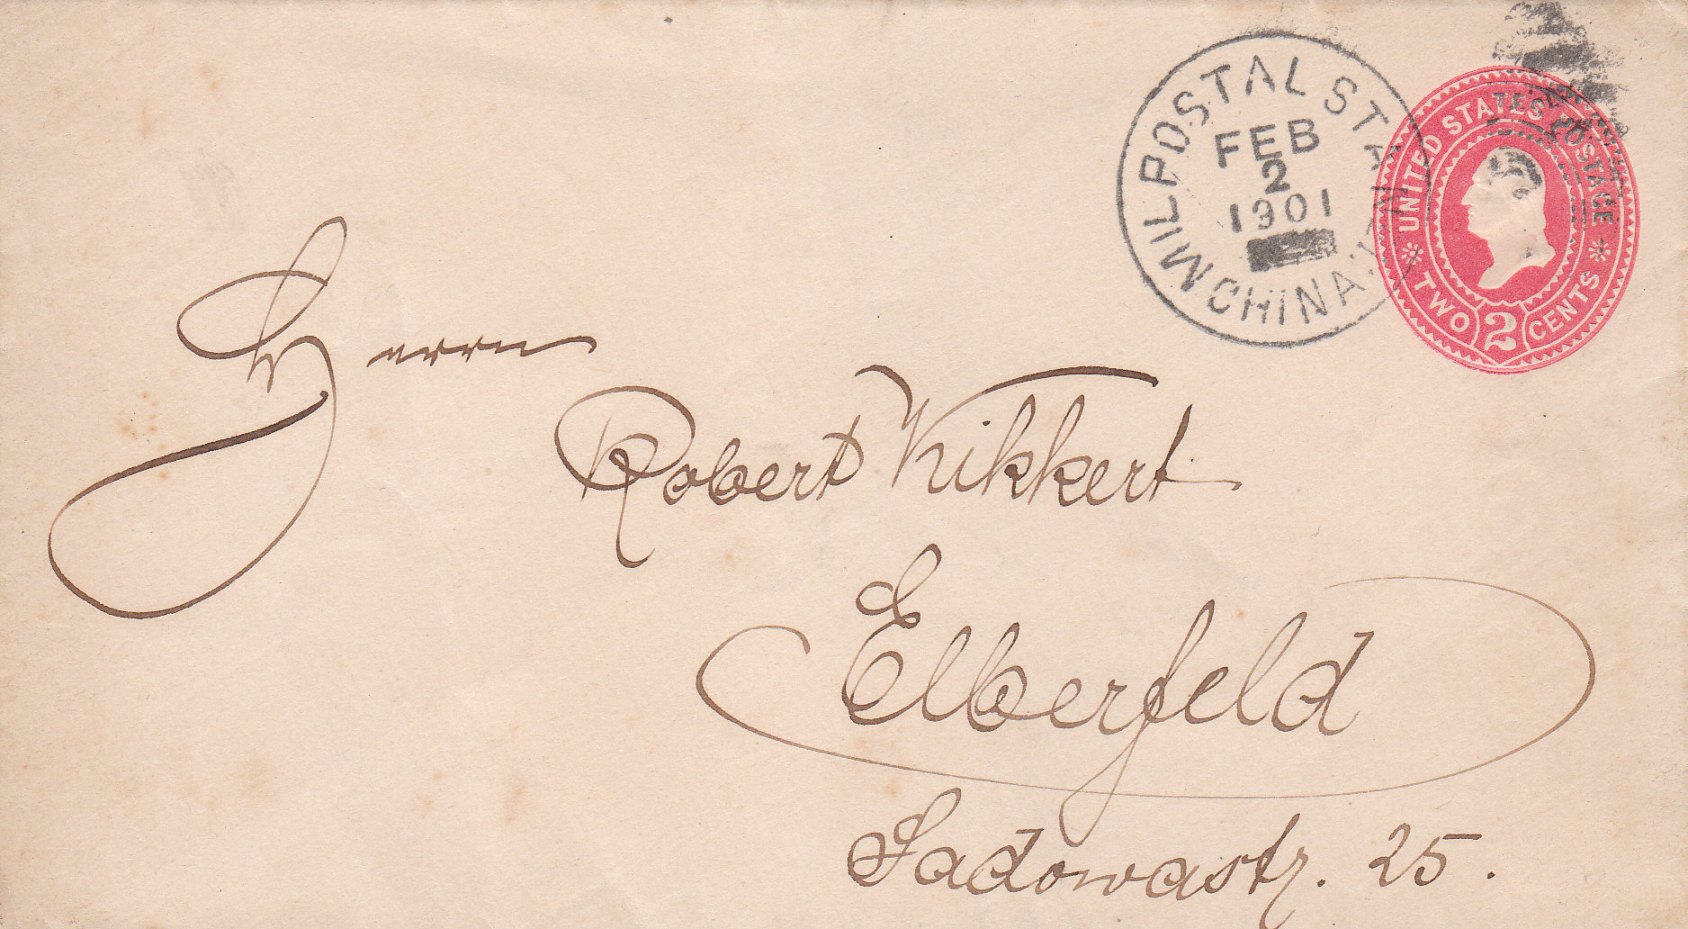 MIL. POSTAL STA.
CHINA.
FEB
2
1901
UNITED STATES POSTAGE
TWO 2 CENTS
Herrn
Robert Kikkert
Elberfeld
Sadowastr. 25.